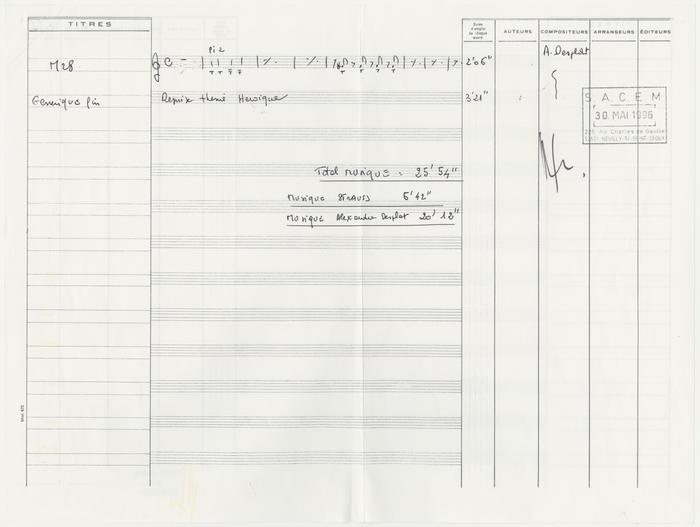 TITRES
Durée d'emploi de chaque œuvre
AUTEURS
COMPOSITEURS
ARRANGEURS
ÉDITEURS
Piz
M28
2'06"
A. Desplat
Generique fin
Reprise theme Heroique
3'21"
S.A.C.E.M
30. MAI 1996
225 Av. Charles de Gaulle
NEUILLY-S/-SEINE
Total musique = 25'54"
Musique STRAUSS 5'42"
Musique Alexandre Desplat 20'12"